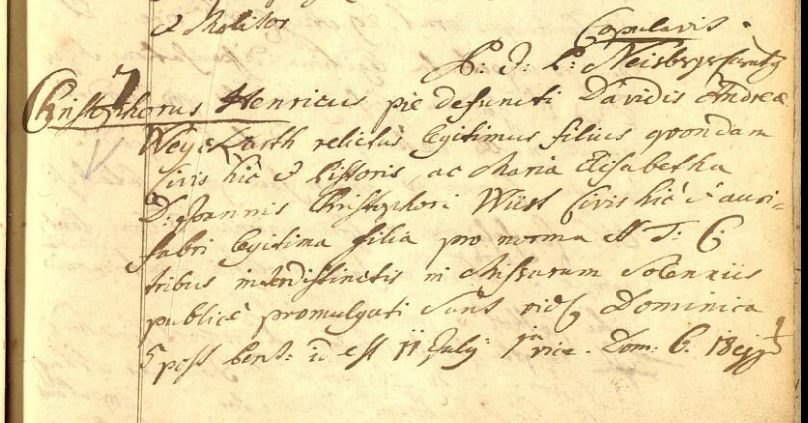 & Molitor
Copulavit
A: J: P: Neisberger
Christophorus Henricus pie defuncti Davidis Andreæ
Weyckarth relictus legitimus filius quondam
Civis hic & Pistoris, ac Maria Elisabetha
D: Joannis Christophori Wüst Civis hic & auri=
fabri legitima filia pro norma S T: C:
tribus interdistinctis in Missarum Solemniis
publicè promulgati sunt Dominica
5 post Pent: id est 11 July 1ma vice. Dom: 6. 18